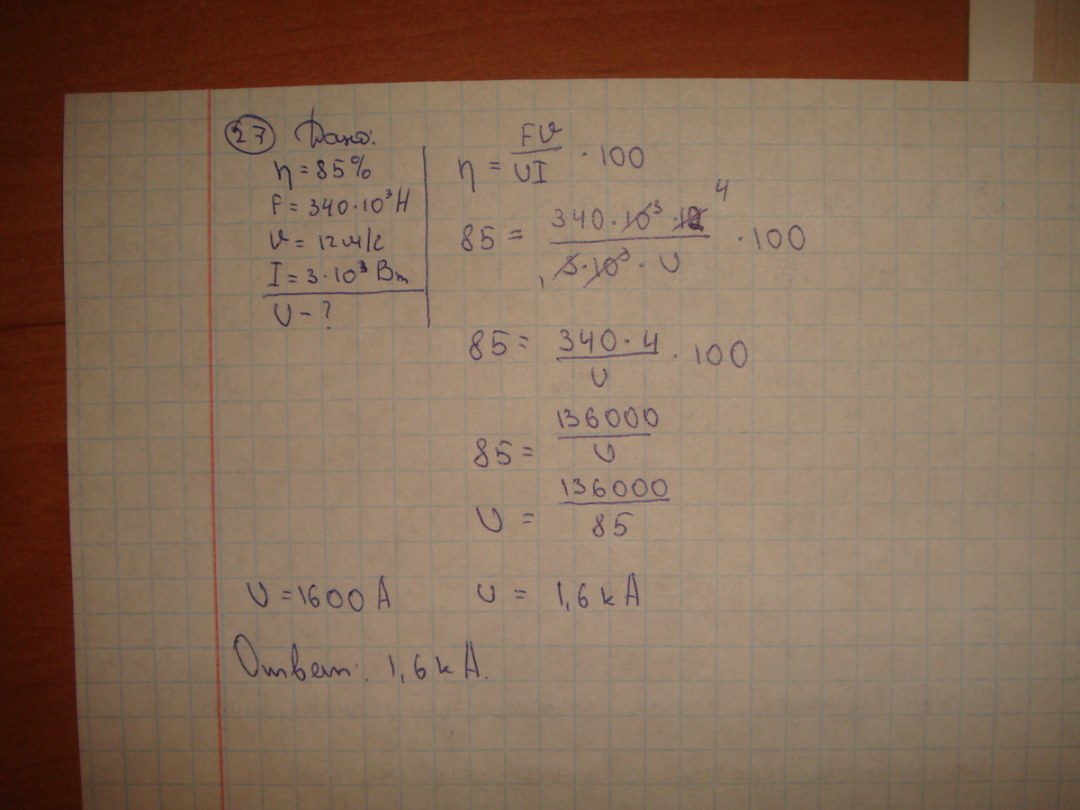 27 Дано:
η = 85%
F = 340·10³ Н
υ = 12 м/с
I = 3·10³ Вт
U - ?
η = Fυ/UI · 100
85 = 340·10³·12/3·10³·U · 100
4
1
85 = 340·4/U · 100
85 = 136000/U
U = 136000/85
U = 1600 А
U = 1,6 кА
Ответ: 1,6 кА.